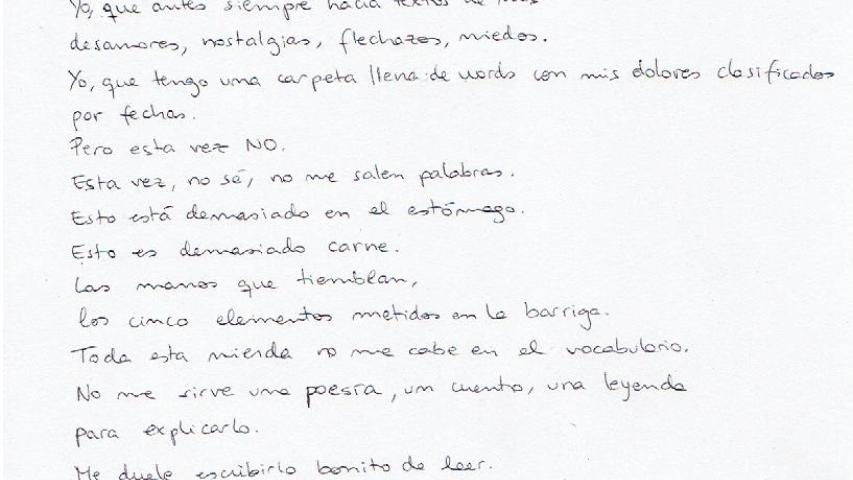 Yo, que antes siempre hacía textos de mis
desamores, nostalgias, flechazos, miedos.
Yo, que tengo una carpeta llena de words con mis dolores clasificados
por fechas.
Pero esta vez NO.
Esta vez, no sé, no me salen palabras.
Esto está demasiado en el estómago.
Esto es demasiado carne.
Las manos que tiemblan,
los cinco elementos metidos en la barriga.
Toda esta mierda no me cabe en el vocabulario.
No me sirve una poesía, un cuento, una leyenda
para explicarlo.
Me duele escribirlo bonito de leer.